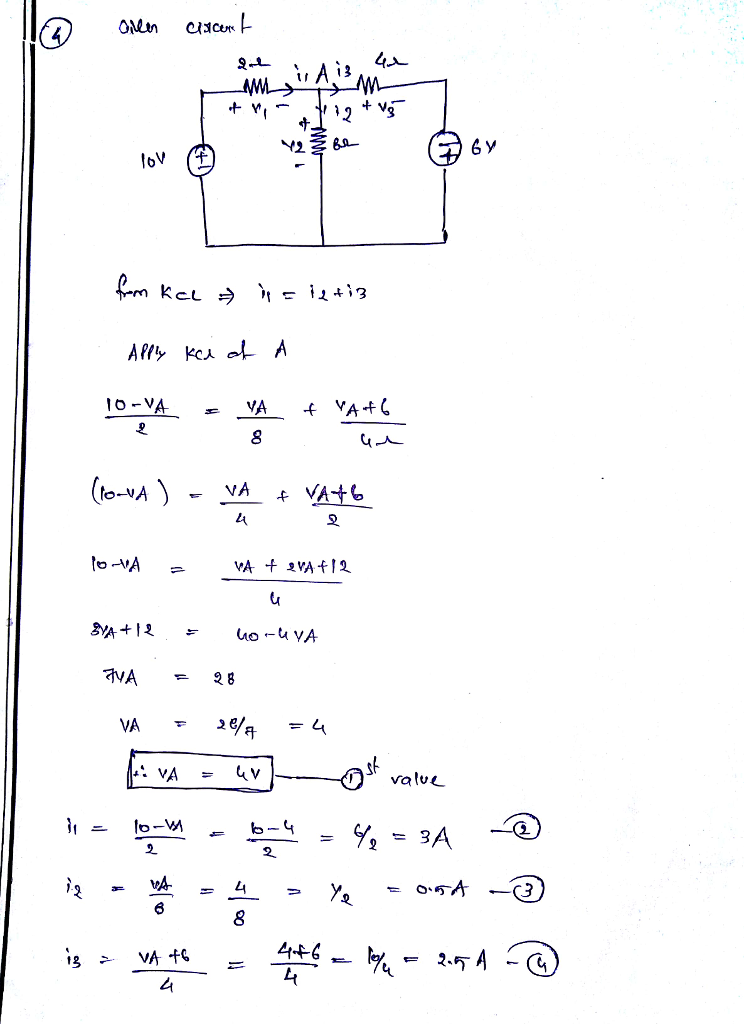 4 Given circuit
2Ω i1 A i3 4Ω
+ V1 - i2 + V3 -
10V + - + V2 - 8Ω - + 6V
from KCL ⇒ i1 = i2+i3
Apply KCL at A
10-VA / 2 = VA / 8 + VA+6 / 4Ω
(10-VA) = VA / 4 + VA+6 / 2
10-VA = VA + 2VA+12 / 4
3VA+12 = 40-4VA
7VA = 28
VA = 28/7 = 4
∴ VA = 4V — 1 st value
i1 = 10-VA / 2 = 10-4 / 2 = 6/2 = 3A — 2
i2 = VA / 8 = 4 / 8 = 1/2 = 0.5A — 3
i3 = VA+6 / 4 = 4+6 / 4 = 10/4 = 2.5A — 4